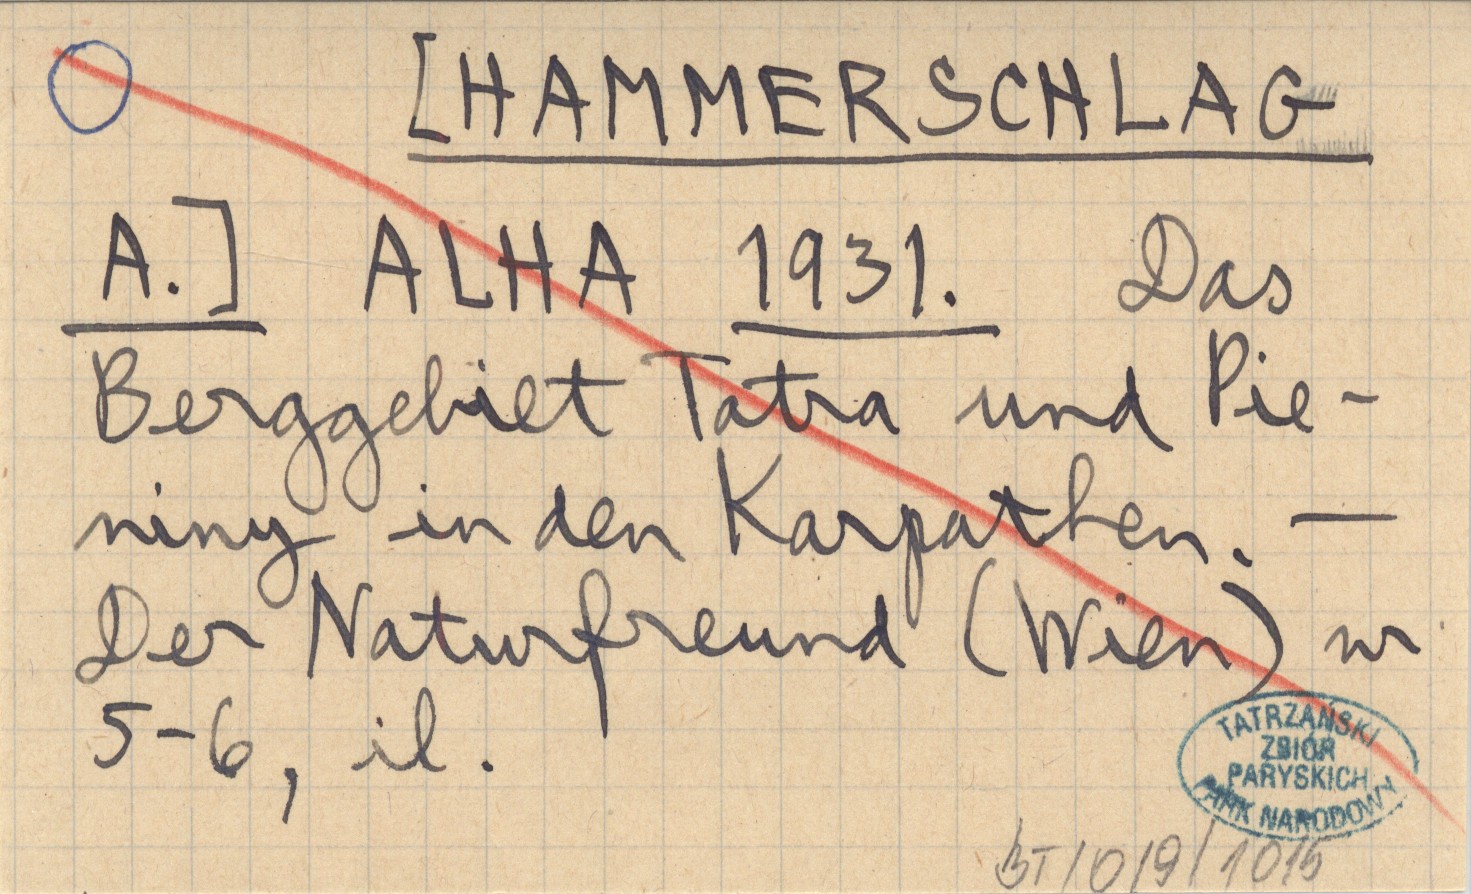 [HAMMERSCHLAG
A.] ALHA 1931. Das
Berggebiet Tatra und Pie-
niny in den Karpathen. —
Der Naturfreund (Wien) nr
5-6, il.
TATRZAŃSKI
ZBIÓR
PARYSKICH
PARK NARODOWY
BT/0/9/1015